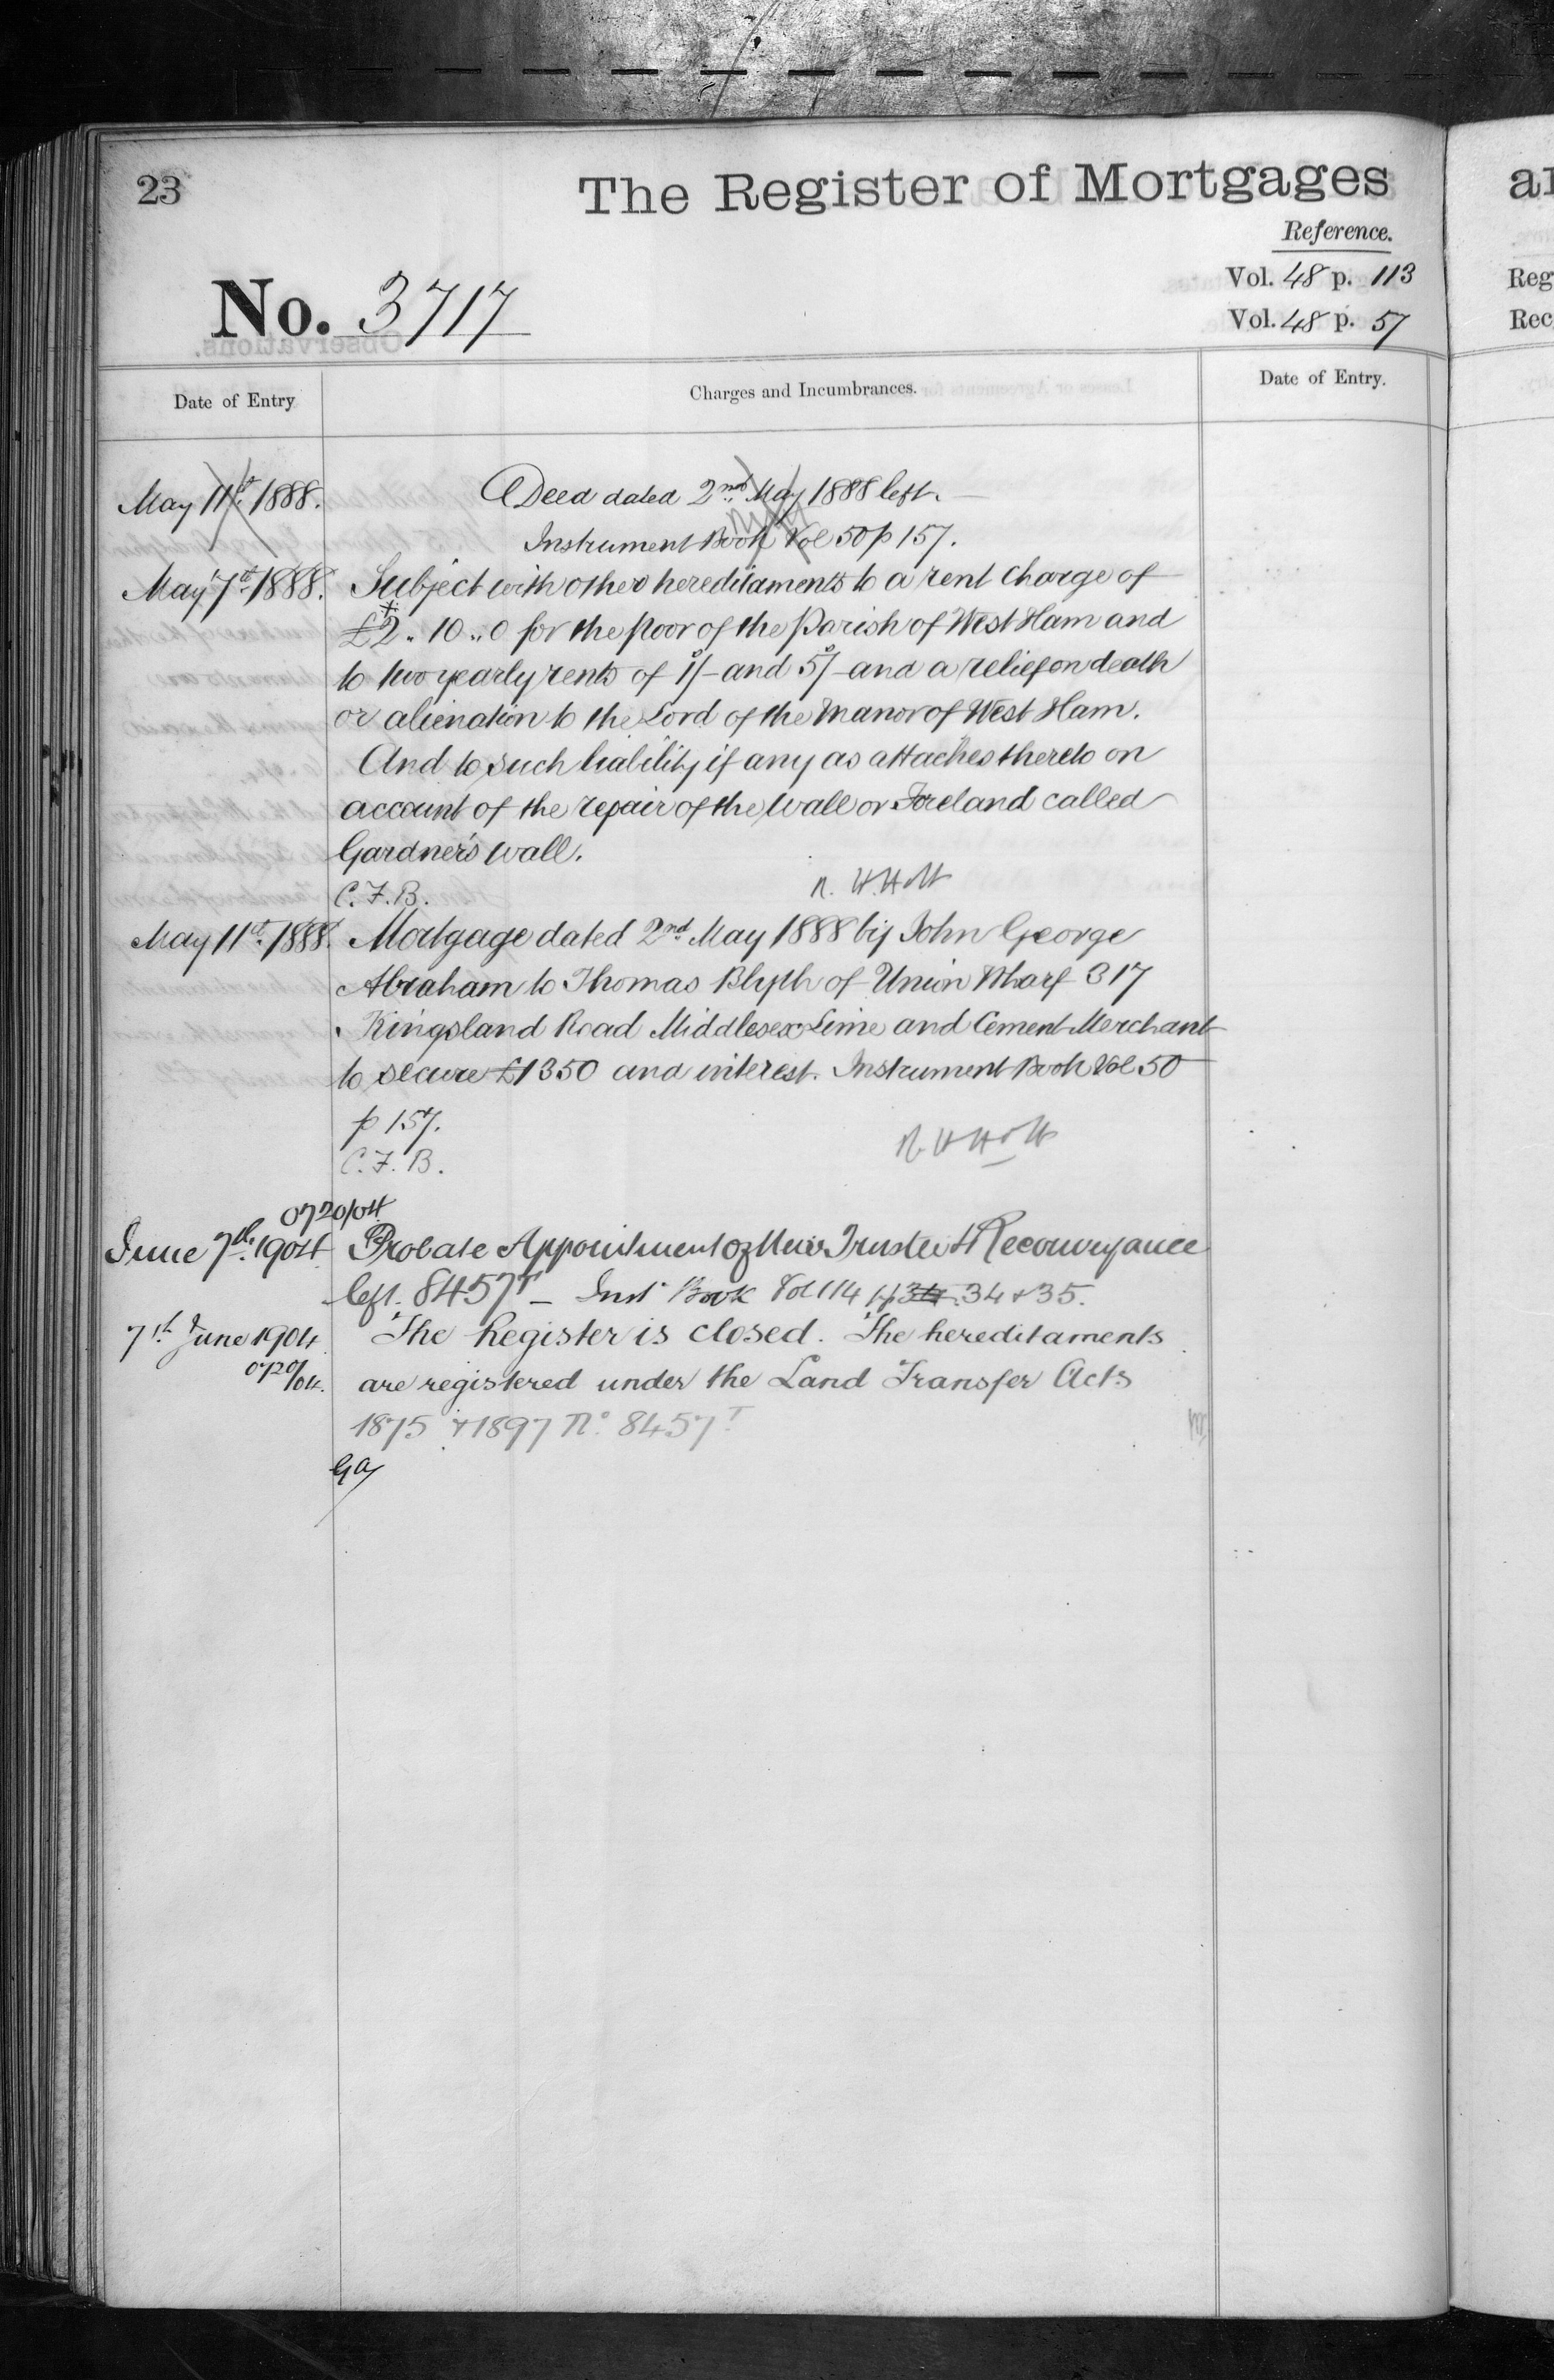 23
The Register of Mortgages
Reference.
No. 3717
Vol. 48 p. 113
Vol. 48 p. 57
Date of Entry
Charges and Incumbrances.
Date of Entry.
May 11th 1888. Deed dated 2nd May 1888 left.
Instrument Book Vol 50 p 157.
May 7th 1888. Subject with other hereditaments to a rent charge of
£2.. 10.. 0 for the poor of the Parish of West Ham and
to two yearly rents of 1s/- and 5s/- and a relief on death
or alienation to the Lord of the Manor of West Ham.
And to such liability if any as attaches thereto on
account of the repair of the wall or Foreland called
Gardner's wall.
C.F.B. R. H. Holt
May 11th 1888. Mortgage dated 2nd May 1888 by John George
Abraham to Thomas Blyth of Union Wharf 317
Kingsland Road Middlesex Lime and Cement Merchant
to secure £1350 and interest. Instrument Book Vol 50
p 157.
C.F.B. R H Holt
0720/04
June 7th 1904 Probate Appointment of New Trustee & Reconveyance
left. 8457T – Inst Book Vol 114 p 34 & 35.
7th June 1904 The Register is closed. The hereditaments
0720/04. are registered under the Land Transfer Acts
1875 & 1897 No. 8457T
GA
ar
Reg
Rec